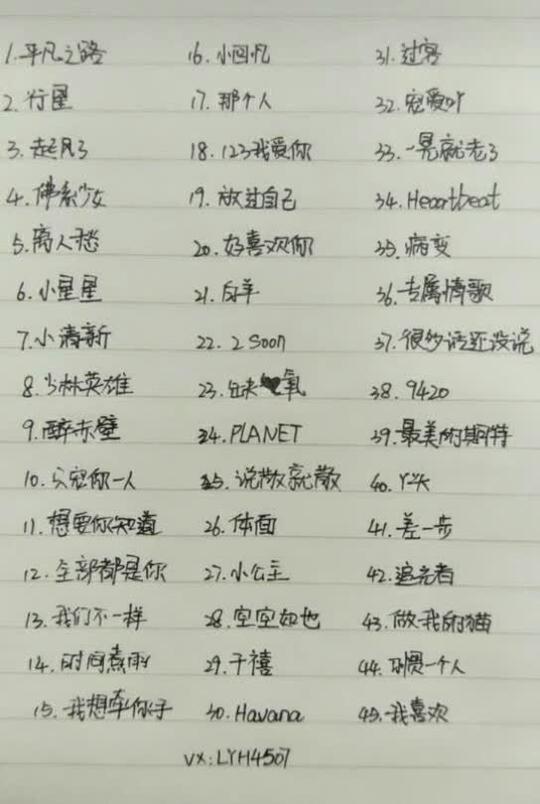 1.平凡之路
2.行星
3.起风了
4.佛系少女
5.离人愁
6.小星星
7.小清新
8.少林英雄
9.醉赤壁
10.只宠你一人
11.想要你知道
12.全部都是你
13.我们不一样
14.时间煮雨
15.我想牵你手
16.小回忆
17.那个人
18.123我爱你
19.放过自己
20.好喜欢你
21.白羊
22.2 Soon
23.缺氧
24.PLANET
25.说散就散
26.体面
27.小公主
28.空空如也
29.千禧
30.Havana
31.过客
32.宠爱
33.一晃就老了
34.Heartbeat
35.病变
36.专属情歌
37.很多话还没说
38.9420
39.最美的期待
40.丫头
41.差一步
42.追光者
43.做我的猫
44.习惯一个人
45.我喜欢
VX:LYH4507